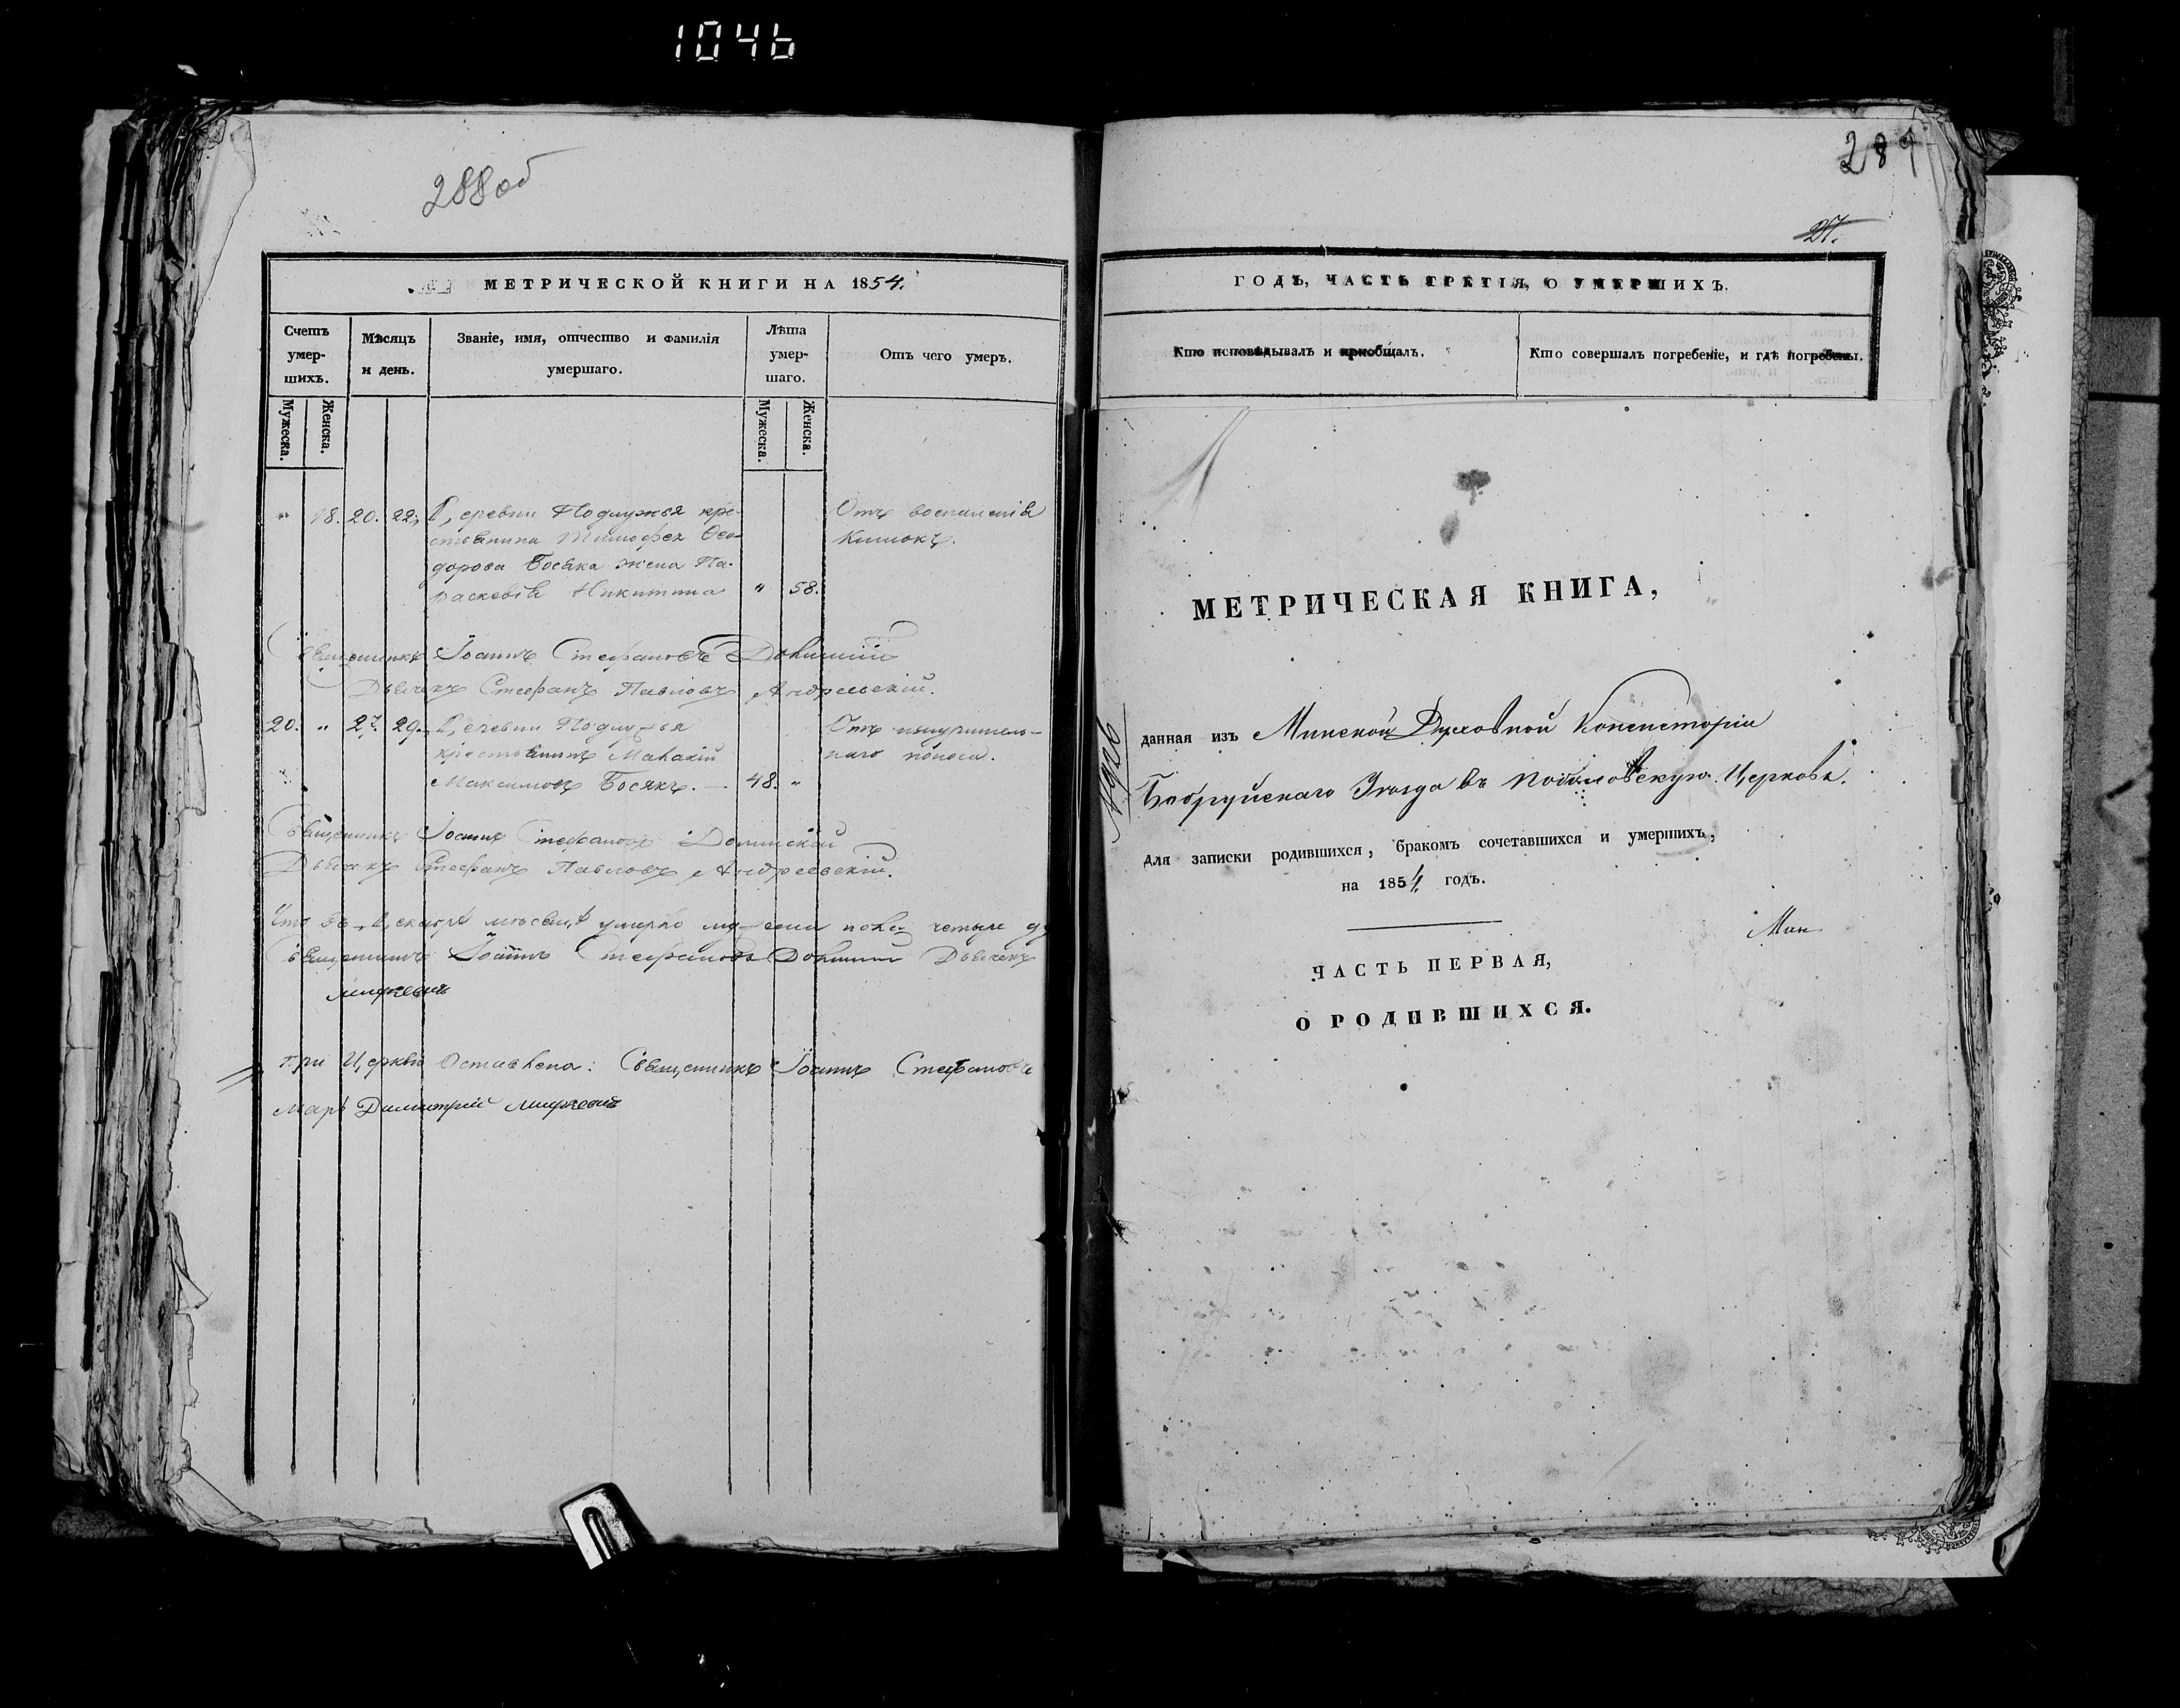 1046
288об
МЕТРИЧЕСКОЙ КНИГИ НА 1854.
Счетъ умер-шихъ.
Мѣсяцъ и день.
Званіе, имя, отчество и фамилія умершаго.
Лѣта умер-шаго.
Отъ чего умеръ.
Мужеска.
Женска.
Мужеска.
Женска.
" 18. 20. 22. Деревни Подлужья кре-
стьянина Тимофея Ѳео-
дорова Босяка жена Па-
раскевія Никитина " 58.
Отъ воспаленія
кишокъ.
Священникъ Іоаннъ Стефановъ
Дьячекъ Стефанъ Павловъ Андреевскій.
20. " 27. 29. Деревни Подлужья
крестьянинъ
Максимовъ Босякъ. 48. "
Отъ изнуритель-
наго поноса.
Священникъ Іоаннъ Стефановъ
Дьячекъ Стефанъ Павловъ Андреевскій.
Что въ Декабрѣ мѣсяцѣ умерло четыре
Священникъ Іоаннъ Стефановъ Дьячекъ
При Церкви Оставлена: Священникъ Іоаннъ Стефановъ
Димитрій
289
27.
ГОДЪ, ЧАСТЬ ТРЕТІЯ, О УМЕРШИХЪ.
Кто исповѣдывалъ и пріобщалъ.
Кто совершалъ погребеніе, и гдѣ погребены.
МЕТРИЧЕСКАЯ КНИГА,
данная изъ Минской Духовной Консисторіи
Бобруйскаго Уѣзда въ Церковь.
для записки родившихся, бракомъ сочетавшихся и умершихъ,
на 1854 годъ.
Мин
ЧАСТЬ ПЕРВАЯ,
О РОДИВШИХСЯ.